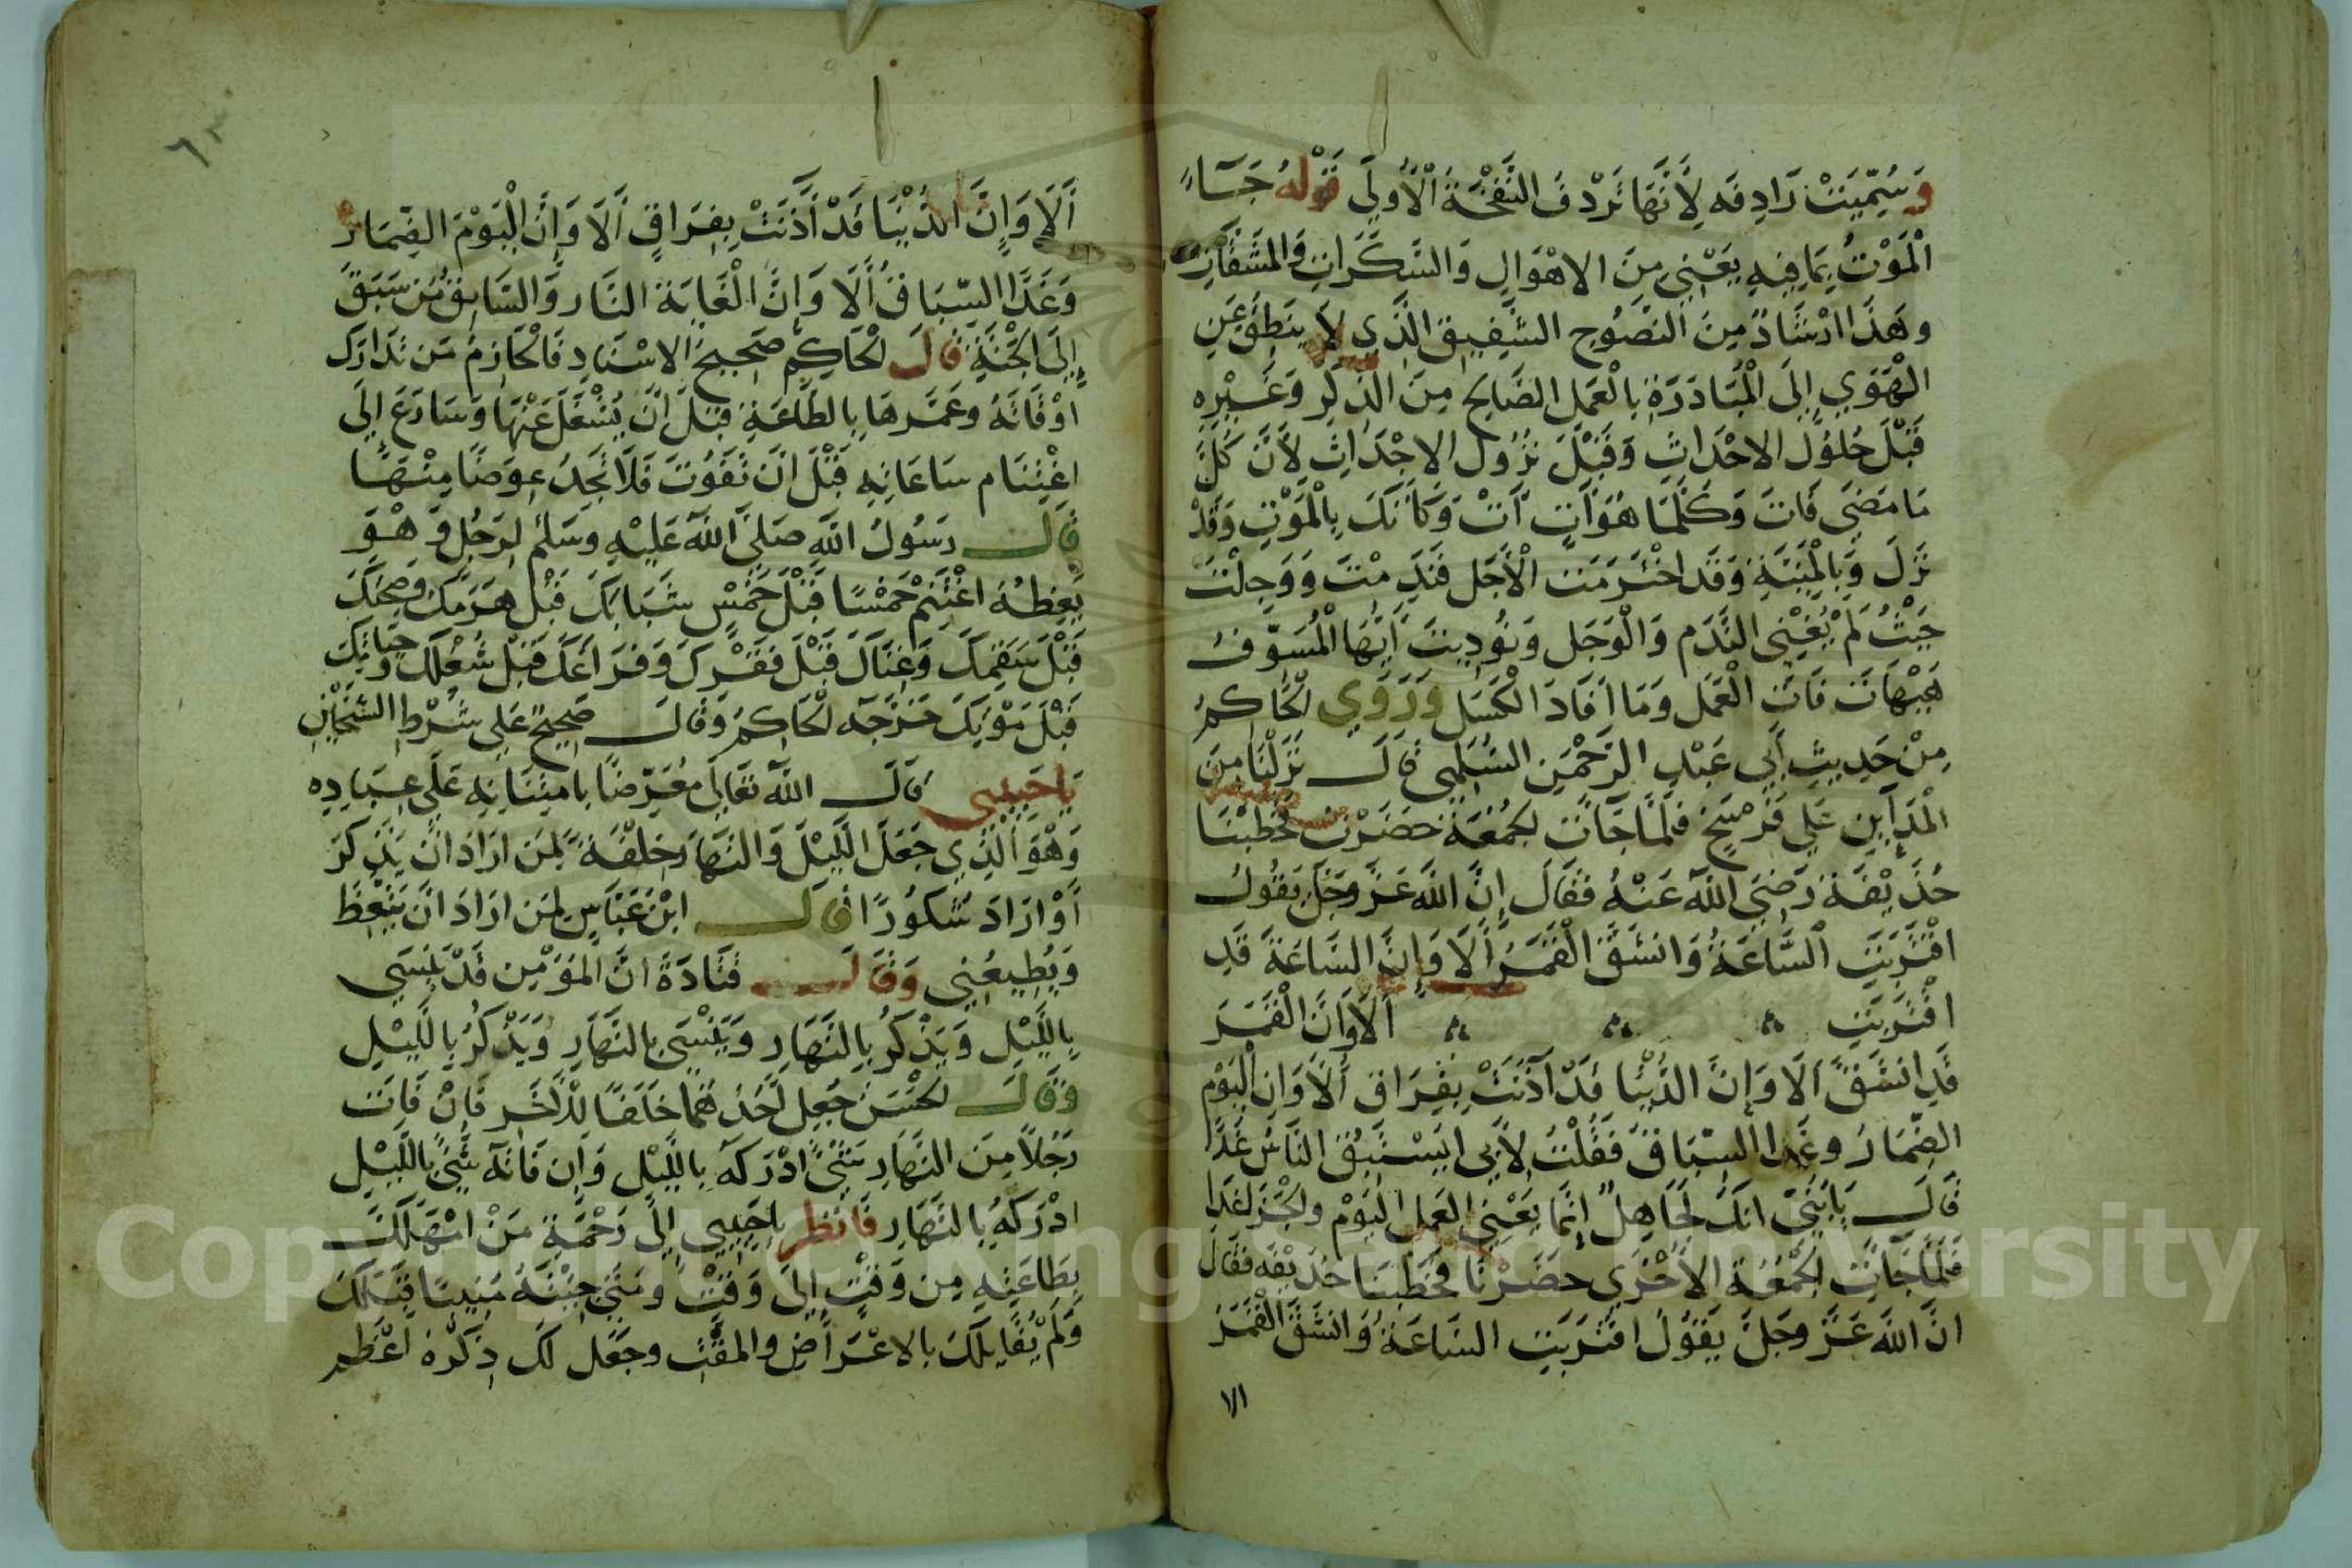 وَسُمِّيَتْ رَادِفَه لِأَنَّهَا تَرْدُفُ النَّفْخَةَ الْأُولَى قَوْلُهُ جَآءَ
الْمَوْتُ بِمَا فِيهِ يَعْنِي مِنَ الاهْوَالِ وَالسَّكَرَاتِ وَالمَشَقَّاتِ
وهَذَا ارْشَادٌ مِنَ النَّصُوحِ الشَّفِيقِ الَّذِي لَا يَنطِقُ عَنِ
الْهَوَي إِلَى الْمُبَادَرَةِ بِالْعَمَلِ الصَّالِحِ مِنَ الذِّكْرِ وَغَيْرِهِ
قَبْلَ حُلُولِ الاحْدَاثِ وَقَبْلَ نُزُولِ الاجْدَاثِ لِأَنَّ كُلَّ
مَا مَضَى فَاتَ وَكُلَّمَا هُوَ آتٍ آتْ وَكَأَنَّكَ بِالْمَوْتِ وَقَدْ
نَزَلَ وَبِالْمَنِيَّةِ وَقَد اخْتَرَمَتِ الْأَجَلَ فَنَدِمْتَ وَوَجِلْتَ
حَيْثُ لَمْ يُغْنِى النَّدَم وَالْوَجَل وَنُودِيتَ أَيُّهَا الْمُسَوِّفُ
هَيْهَاتَ فَاتَ الْعَمَل وَمَا اَفَادَ الْكَسَل وَرَوَي لْحَاكِمُ
مِنْ حَدِيثِ أَبِي عَبْدِ الرَّحْمَنِ السُّلَمِي قَالَ نَزَلْنَا مِنَ
الْمَدَآيِنِ عَلَي فَرْسَخٍ فَلَمَّا جَآتَ لجُمُعَةُ حَضَرْتُ فَخَطَبْنَا
حُذَيْفَةُ رَضِيَ اللَّهُ عَنْهُ فَقَالَ إِنَّ اللَّهَ عَزَّ وَجَلَّ يَقُولُ
اقْتَرَبَتِ السَّاعَةُ وَانشَقَّ الْقَمَرُ أَلَا وَإِنَّ السَّاعَةَ قَدِ
اقْتَرَبَتِ أَلَا وَأَنَّ الْقَمَرَ
قَدِ انشَقَّ أَلَا وَإِنَّ الدُّنْيَا قَدْ آذَنَتْ بِفِرَاقٍ أَلَا وَانَّ الْيَوْم
الضِمَارَ وغَدا السِّبَاقَ فَقُلْتُ لِأَبِى ايَسْتَبِقُ النَّاسُ غَدًا
قَالَ يَابُنَيَّ انَكَ لَجَاهِلٌ إِنَّمَا يَعْنِي العَمل الْيَوْمْ ولْجَزَا غَدا
فَلَمَّا جَآتِ لْجُمُعَةُ الأُخْرَي حضَرْنَا فَخَطَبنَا حُذَيْفَه فقَالَ
انَّ اللَّهَ عَزَّ وَجَلَّ يَقُولُ اقْتَرَبَتِ السَّاعَةُ وَانشَقَّ الْقَمَرُ
الا
أَلَا وَإِنَّ الدُّنْيَا قَدْ آذَنَتْ بِفِرَاقٍ أَلَا وَإِنَّ الْيَوْمَ الضِّمَارَ
وَغَدًا السِّبَاقُ أَلَا وَإِنَّ الْغَايَةَ النَّار وَالسَّابِقُ مَن سَبَقَ
إِلَى الْجَنَّةِ قَالَ لْحَاكِمُ صَحِيحُ الاسْنَادِ فَالْحَازِمُ مَن تَدَارَكَ
أَوْقَاتَهُ وعَمَّرهَا بِالطَّاعَةِ قَبْلَ انْ يُشْغَلَ عَنْهَا وَسَارَعَ إِلَى
اغْتِنَام سَاعَاتِهِ قَبْلَ انَ تَفُوتَ فَلَا تَجِدُ عِوَضًا مِنْهَا
قَالَ رَسُولُ اللَّهِ صَلَّى اللَّهُ عَلَيْهِ وَسَلَّمَ لِرَجُلٍ وَهْوَ
يَعِظُهُ اغْتَنِمْ خَمْسًا قَبْلَ خَمْسٍ شَبَابَكَ قَبْلَ هَرَمِكَ وَصِحَتَكَ
قَبْلَ سَقَمِكَ وَغِنَاكَ قَبْلَ فَقْرِكَ وَفَرَاغَكَ قَبْلَ شُغْلِكَ وَحَيَاتَكَ
قَبْلَ مَوْتِكَ خَرَّجَه لْحَاكِمُ وَقَالَ صَحِيحٌ عَلَى شَرْطِ الشَّيْخَيْنِ
يَاحَبِيبِي قَالَ اللَّهُ تَعَالَى مُعَرِّضًا بِامْتِنَانِهِ عَلَى عِبَادِه
وَهْوَ الَّذِي جَعَلَ اللَّيْلَ وَالنَّهَارَ خِلْفَةً لِمَن ارَادَ انْ يَذَّكَّرَ
أَوْ ارَادَ شُكُورًا قَالَ ابْنُ عَبَّاسٍ لِمَن ارَادَ انْ يَتَّعِظَ
وَيُطِيعُنِي وَقَالَ قَتَادَةُ انَّ المُؤْمِن قَدْ يَنْسَى
بِاللَّيْلِ وَيَذْكُرُ بِالنَّهَارِ وَيَنْسَى بِالنَّهَارِ وَيَذْكُرُ بِاللَّيْلِ
وَقَالَ لْحَسَنُ جُعِلَ أَحَدُ هُمَا خَلَفًا لِلْاخَرِ فَإنْ فَاتَ
رَجُلًا مِنَ النَّهَارِ شَيْئً ادْرَكَهُ بِاللَّيْلِ وَإن فَاتَهُ شَيْئً بِاللَّيْلِ
ادْرَكَهُ بِالنَّهَارِ فَانظر ياحَبِيبِي إِلَى رَحْمَةِ مَنْ امْهَلَكَ
بِطَاعَتِهِ مِن وَقْتٍ إِلَى وَقْتْ ومَتَى جِئْتَهُ مُنِيبًا قَبِلَكَ
وَلَمْ يُقَابِلْكَ بِالاعْرَاضِ والمقْتِ وجَعَل لَكَ ذِكْرَهُ أعْظَم
Copyright © King Saud University